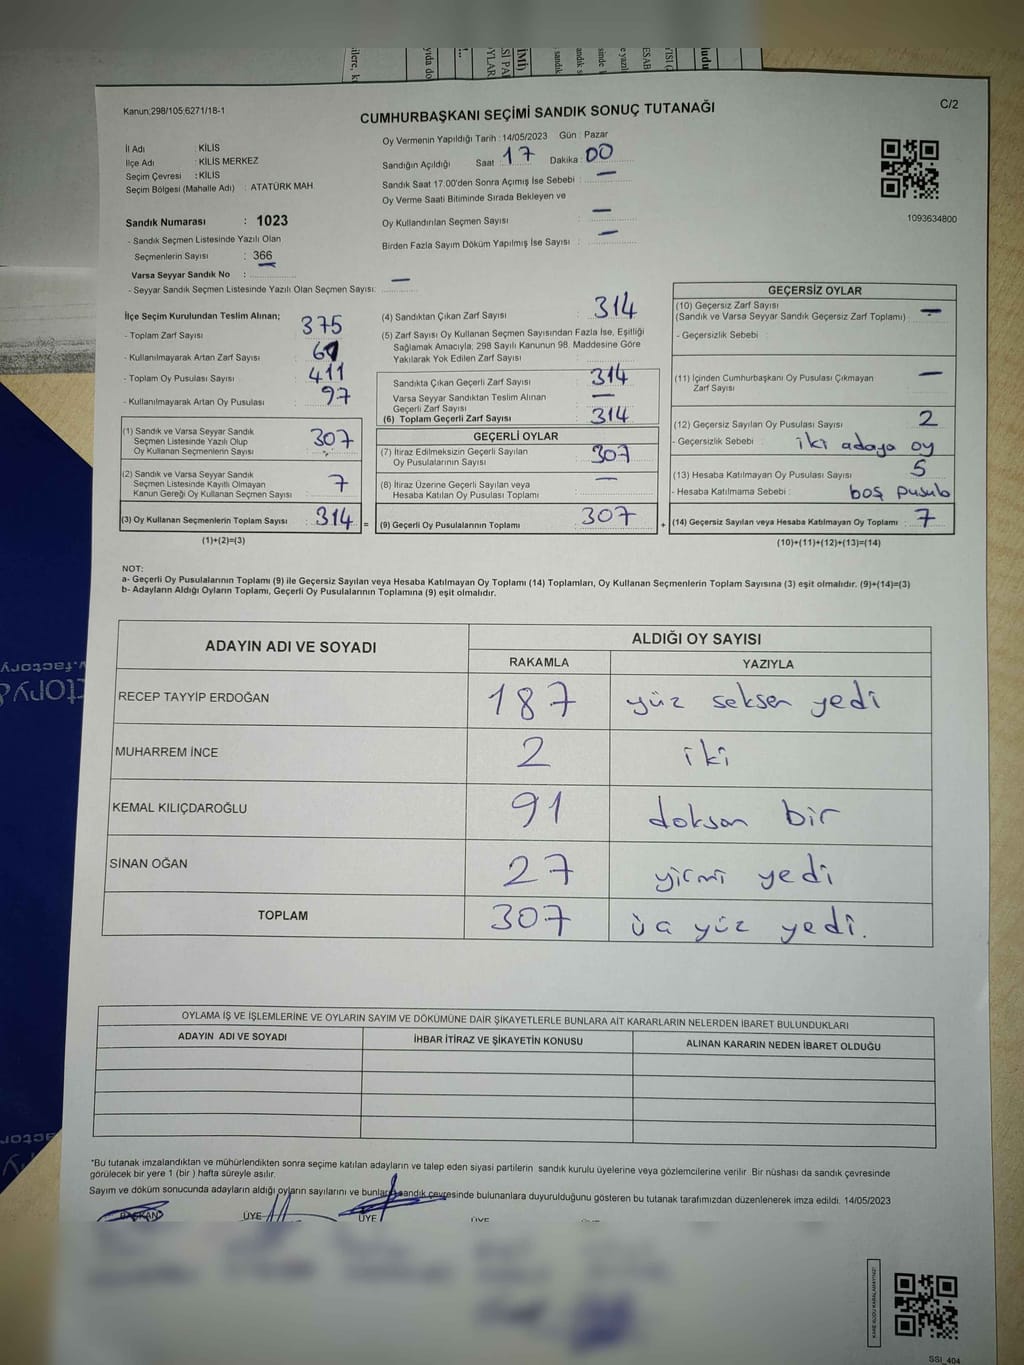 Kanun:298/105,6271/18-1
CUMHURBAŞKANI SEÇİMİ SANDIK SONUÇ TUTANAĞI
C/2
İl Adı : KİLİS
İlçe Adı : KİLİS MERKEZ
Seçim Çevresi : KİLİS
Seçim Bölgesi (Mahalle Adı) : ATATÜRK MAH.
Sandık Numarası : 1023
- Sandık Seçmen Listesinde Yazılı Olan
Seçmenlerin Sayısı : 366
Varsa Seyyar Sandık No :
- Seyyar Sandık Seçmen Listesinde Yazılı Olan Seçmen Sayısı: —
Oy Vermenin Yapıldığı Tarih : 14/05/2023 Gün : Pazar
Sandığın Açıldığı Saat 17 Dakika : 00
Sandık Saat 17.00'den Sonra Açımış İse Sebebi : —
Oy Verme Saati Bitiminde Sırada Bekleyen ve
Oy Kullandırılan Seçmen Sayısı : —
Birden Fazla Sayım Döküm Yapılmış İse Sayısı : —
1093634800
İlçe Seçim Kurulundan Teslim Alınan;
- Toplam Zarf Sayısı : 375
- Kullanılmayarak Artan Zarf Sayısı :
- Toplam Oy Pusulası Sayısı : 411
- Kullanılmayarak Artan Oy Pusulası : 97
(1) Sandık ve Varsa Seyyar Sandık
Seçmen Listesinde Yazılı Olup
Oy Kullanan Seçmenlerin Sayısı : 307
(2) Sandık ve Varsa Seyyar Sandık
Seçmen Listesinde Kayıtlı Olmayan
Kanun Gereği Oy Kullanan Seçmen Sayısı : 7
(3) Oy Kullanan Seçmenlerin Toplam Sayısı : 314 =
(1)+(2)=(3)
(4) Sandıktan Çıkan Zarf Sayısı : 314
(5) Zarf Sayısı Oy Kullanan Seçmen Sayısından Fazla İse, Eşitliği
Sağlamak Amacıyla; 298 Sayılı Kanunun 98. Maddesine Göre
Yakılarak Yok Edilen Zarf Sayısı :
Sandıkta Çıkan Geçerli Zarf Sayısı : 314
Varsa Seyyar Sandıktan Teslim Alınan
Geçerli Zarf Sayısı : —
(6) Toplam Geçerli Zarf Sayısı : 314
GEÇERLİ OYLAR
(7) İtiraz Edilmeksizin Geçerli Sayılan
Oy Pusulalarının Sayısı : 307
(8) İtiraz Üzerine Geçerli Sayılan veya
Hesaba Katılan Oy Pusulası Toplamı : —
(9) Geçerli Oy Pusulalarının Toplamı : 307 +
GEÇERSİZ OYLAR
(10) Geçersiz Zarf Sayısı
(Sandık ve Varsa Seyyar Sandık Geçersiz Zarf Toplamı) : —
- Geçersizlik Sebebi :
(11) İçinden Cumhurbaşkanı Oy Pusulası Çıkmayan
Zarf Sayısı : —
(12) Geçersiz Sayılan Oy Pusulası Sayısı : 2
- Geçersizlik Sebebi : iki adaya oy
(13) Hesaba Katılmayan Oy Pusulası Sayısı : 5
- Hesaba Katılmama Sebebi : boş pusula
(14) Geçersiz Sayılan veya Hesaba Katılmayan Oy Toplamı : 7
(10)+(11)+(12)+(13)=(14)
NOT:
a- Geçerli Oy Pusulalarının Toplamı (9) ile Geçersiz Sayılan veya Hesaba Katılmayan Oy Toplamı (14) Toplamları, Oy Kullanan Seçmenlerin Toplam Sayısına (3) eşit olmalıdır. (9)+(14)=(3)
b- Adayların Aldığı Oyların Toplamı, Geçerli Oy Pusulalarının Toplamına (9) eşit olmalıdır.
ADAYIN ADI VE SOYADI ALDIĞI OY SAYISI
RAKAMLA YAZIYLA
RECEP TAYYİP ERDOĞAN 187 yüz seksen yedi
MUHARREM İNCE 2 iki
KEMAL KILIÇDAROĞLU 91 doksan bir
SİNAN OĞAN 27 yirmi yedi
TOPLAM 307 üç yüz yedi.
OYLAMA İŞ VE İŞLEMLERİNE VE OYLARIN SAYIM VE DÖKÜMÜNE DAİR ŞİKAYETLERLE BUNLARA AİT KARARLARIN NELERDEN İBARET BULUNDUKLARI
ADAYIN ADI VE SOYADI İHBAR İTİRAZ VE ŞİKAYETİN KONUSU ALINAN KARARIN NEDEN İBARET OLDUĞU
*Bu tutanak imzalandıktan ve mühürlendikten sonra seçime katılan adayların ve talep eden siyasi partilerin sandık kurulu üyelerine veya gözlemcilerine verilir. Bir nüshası da sandık çevresinde
görülecek bir yere 1 (bir ) hafta süreyle asılır.
Sayım ve döküm sonucunda adayların aldığı oyların sayılarını ve bunların sandık çevresinde bulunanlara duyurulduğunu gösteren bu tutanak tarafımızdan düzenlenerek imza edildi. 14/05/2023
BAŞKAN ÜYE ÜYE ÜYE ÜYE
SSI_404